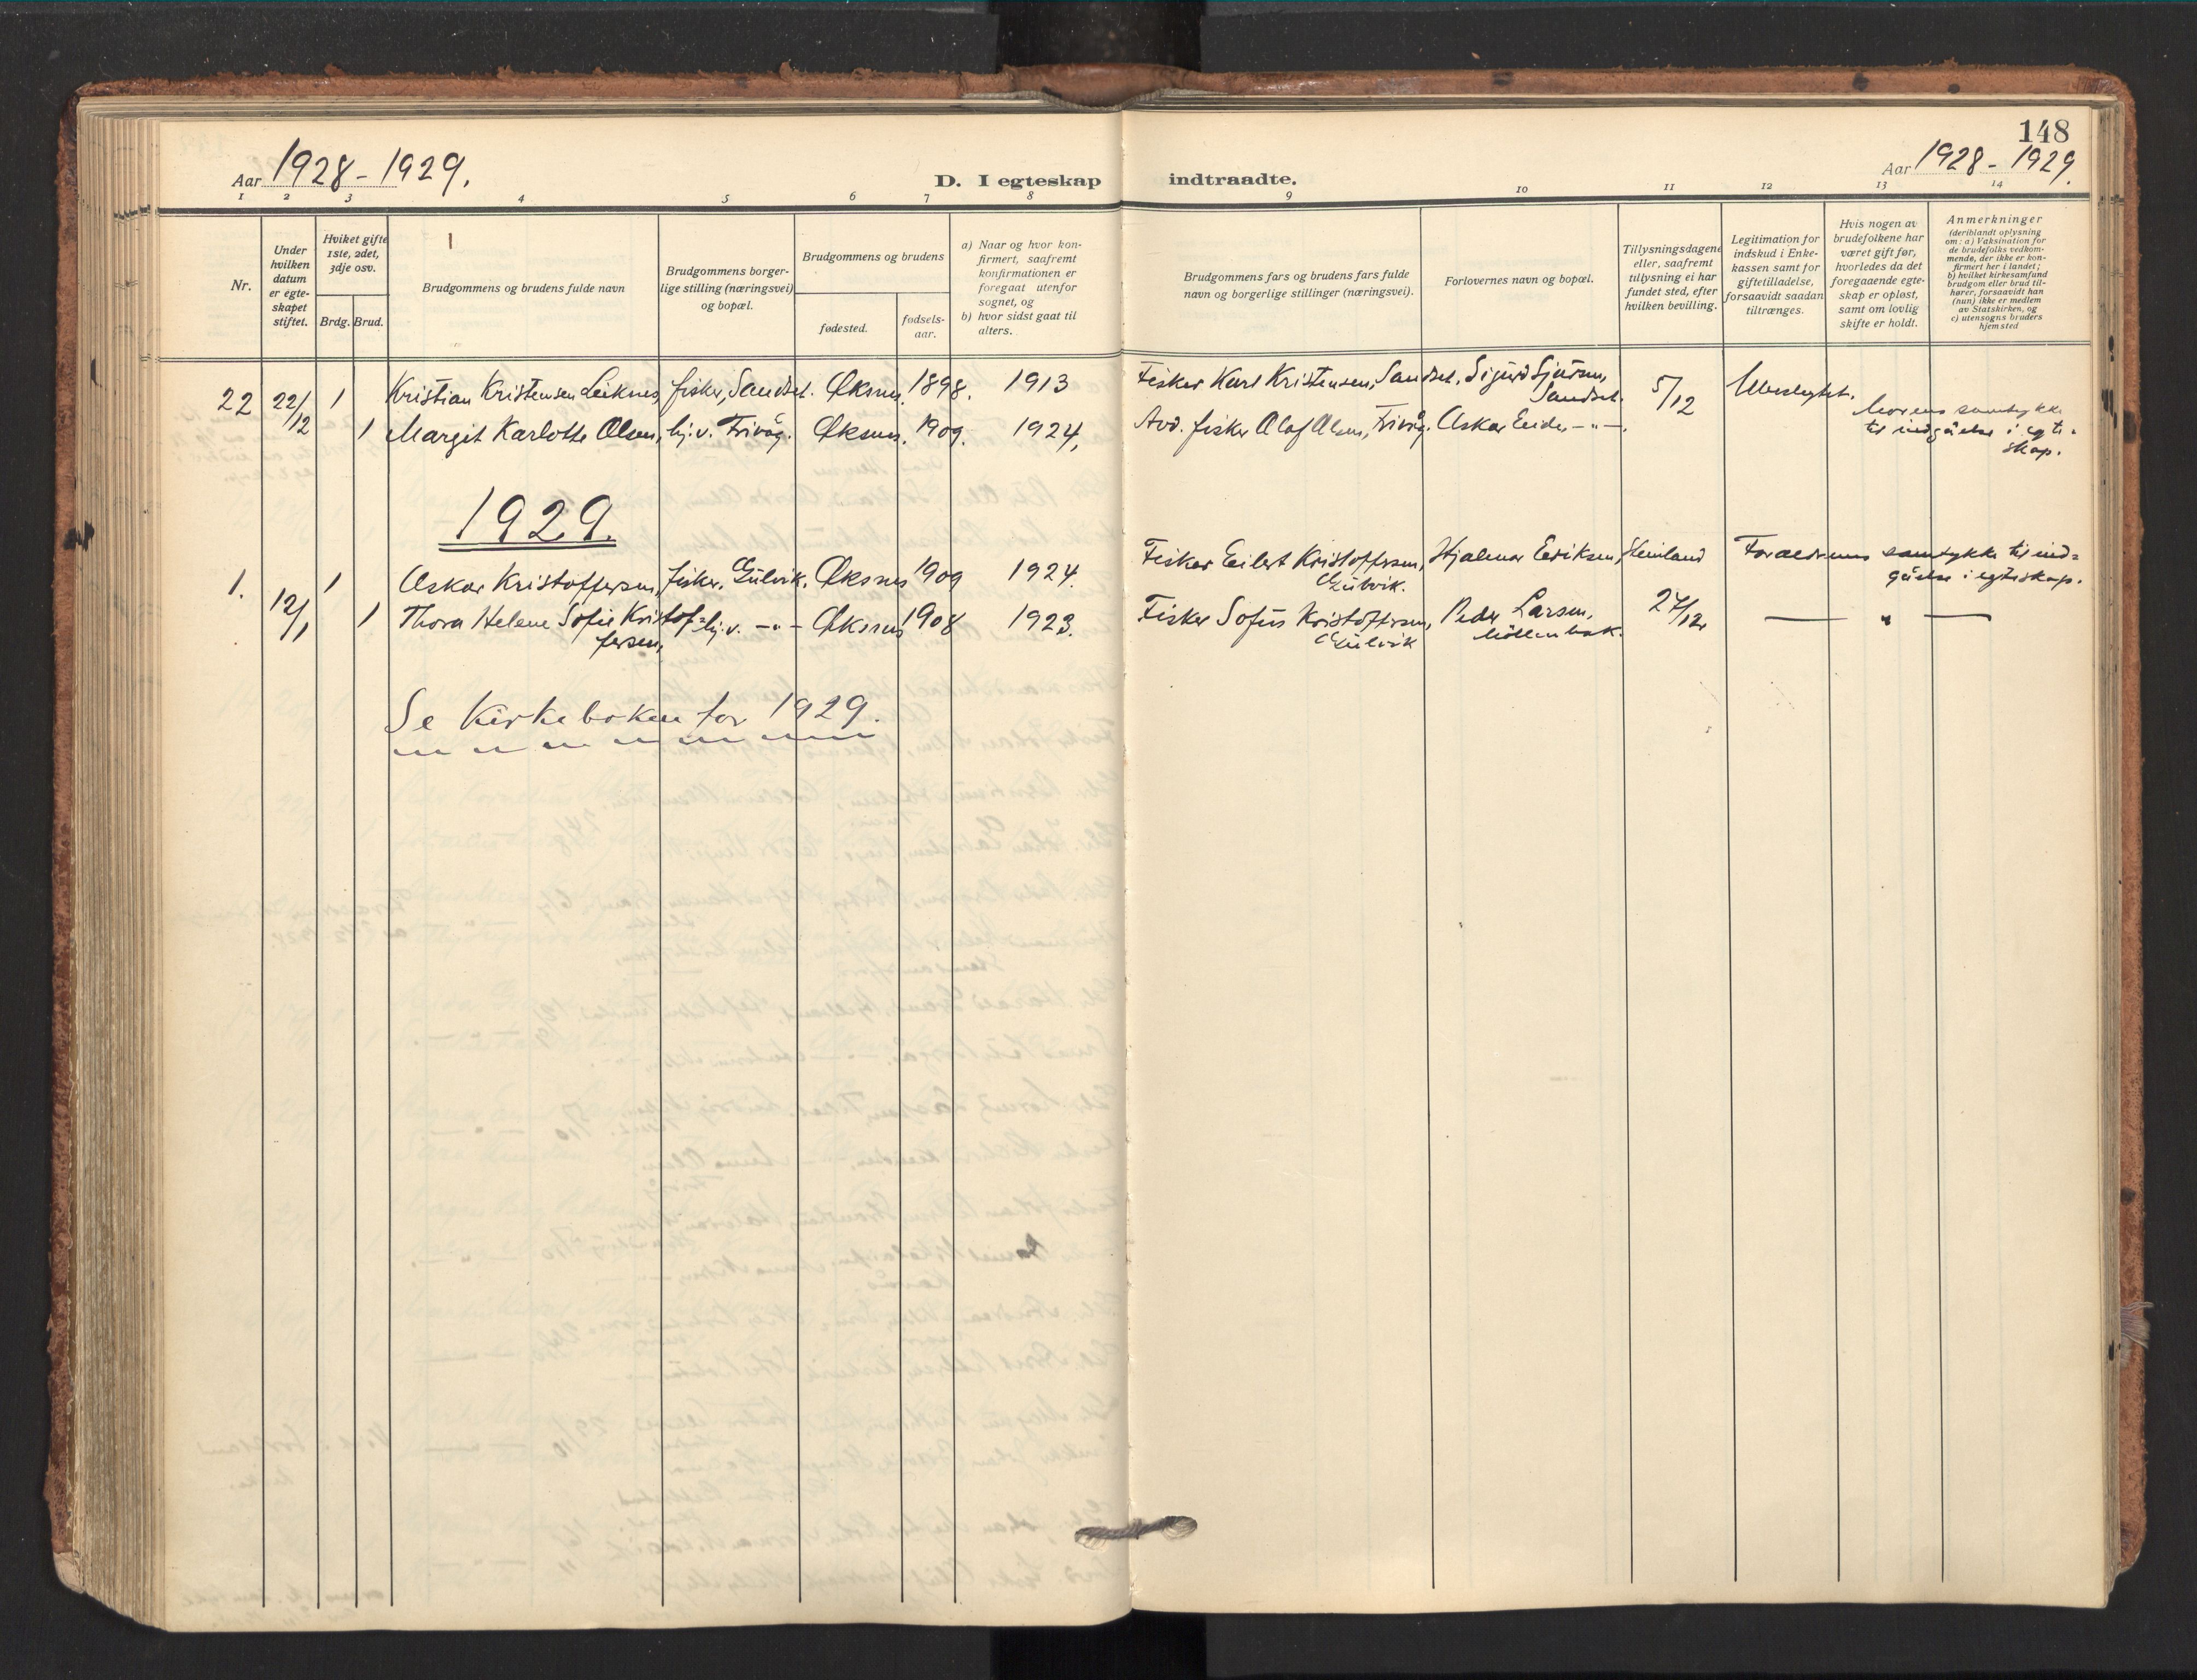 148
Aar 1928-1929.
D. I egteskap indtraadte.
Aar 1928-1929.
1 2 3 4 5 6 7 8 9 10 11 12 13 14
Nr.
Under
hvilken
datum
er egte-
skapet
stiftet.
Hviket gifte
1ste, 2det,
3dje osv.
Brdg. Brud.
Brudgommens og brudens fulde navn
Brudgommens borger-
lige stilling (næringsvei)
og bopæl.
Brudgommens og brudens
fødested.
fødsels-
aar.
a) Naar og hvor kon-
firmert, saafremt
konfirmationen er
foregaat utenfor
sognet, og
b) hvor sidst gaat til
alters.
Brudgommens fars og brudens fars fulde
navn og borgerlige stillinger (næringsvei).
Forlovernes navn og bopæl.
Tillysningsdagene
eller, saafremt
tillysning ei har
fundet sted, efter
hvilken bevilling.
Legitimation for
indskud i Enke-
kassen samt for
giftetilladelse,
forsaavidt saadan
tiltrænges.
Hvis nogen av
brudefolkene har
været gift før,
hvorledes da det
foregaaende egte-
skap er opløst,
samt om lovlig
skifte er holdt.
Anmerkninger
(deriblandt oplysning
om: a) Vaksination for
de brudefolks vedkom-
mende, der ikke er kon-
firmert her i landet;
b) hvilket kirkesamfund
brudgom eller brud til-
hører, forsaavidt han
(hun) ikke er medlem
av Statskirken, og
c) utensogns bruders
hjemsted
22 22/12 1 Kristian Kristensen Leiknes, fisker, Sandset. Øksnes. 1898. 1913 Fisker Karl Kristensen, Sandset. Sigurd Sjursen,
Sandset. 5/12 Ubeslegtet.
1 Margit Karlotte Olsen, hj.v. Frivåg. Øksnes. 1909. 1924. Avd. fisker Olaf Olsen, Frivåg. Oskar Eide, -"-.
Morens samtykke
til indgåelse i egte-
skap.
1929.
1. 12/1 1 Oskar Kristoffersen, fisker. Gulvik. Øksnes 1909 1924. Fisker Eilert Kristoffersen,
Gulvik. Hjalmar Eriksen, Steinland Foraeldrenes samtykke til ind=
gåelse i egteskap.
1 Thora Helene Sofie Kristof=
fersen, hj.v. -"- Øksnes 1908 1923. Fisker Sofus Kristoffersen,
Gulvik Peder Larsen,
27/12. — " —
Se Kirkeboken for 1929.